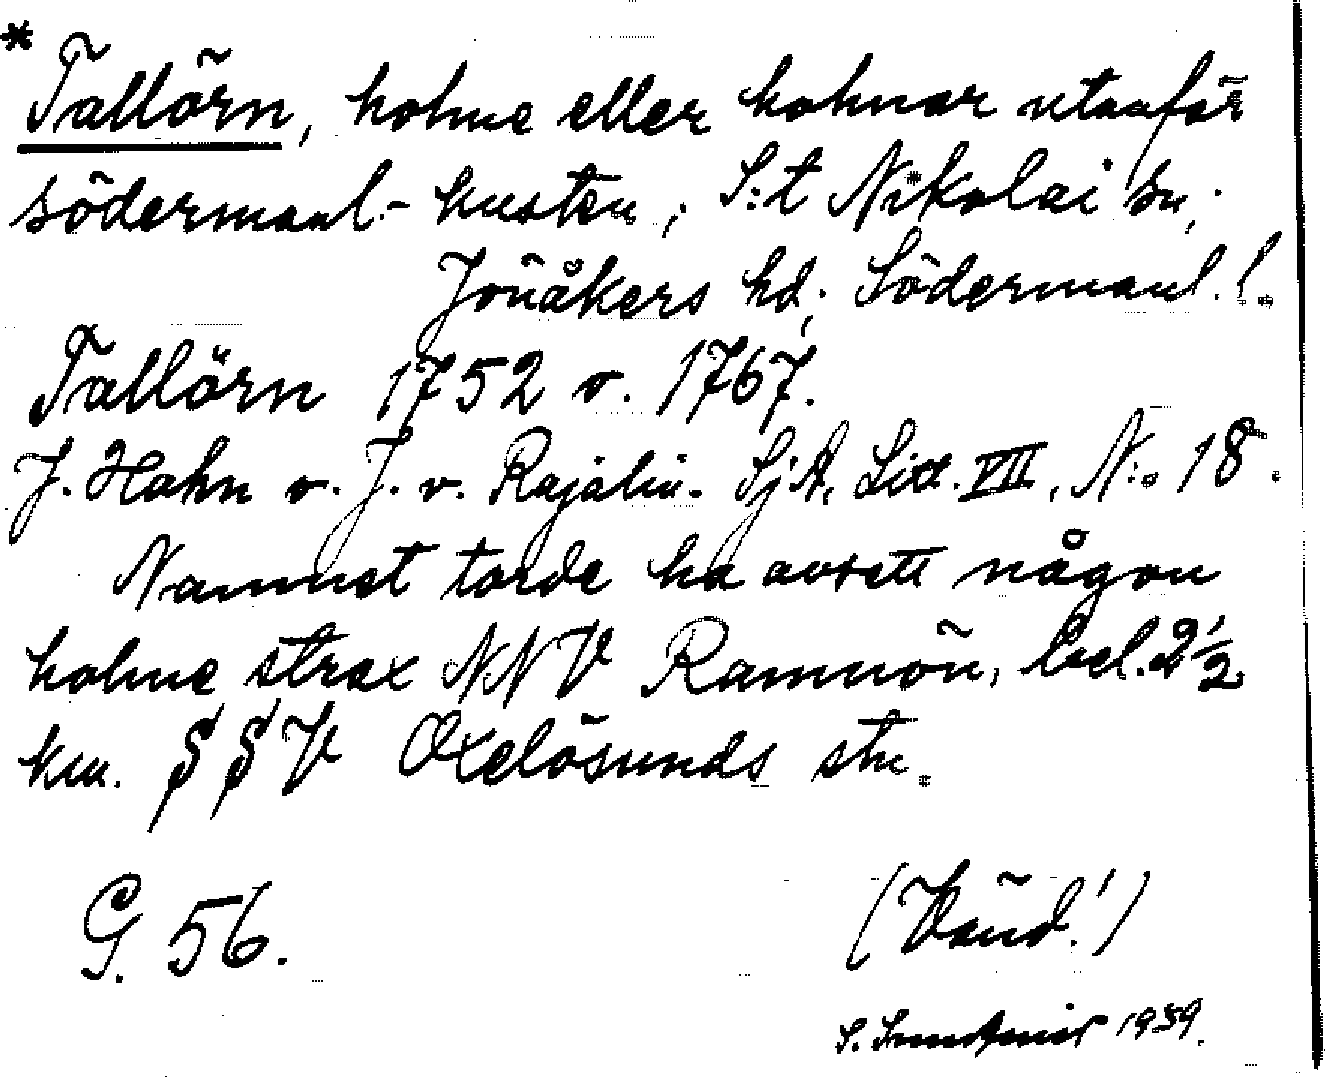 * Tallörn, holme eller holmar utanför
södermanl.- kusten, S:t Nikolai sn,
Jönåkers hd, Södermanl. l.
Tallörn 1752 o. 1767.
J. Hahn o. J. v. Rajalin. SjA, Litt. VII, N:o 18.
Namnet torde ha avsett någon
holme strax NNV Ramnön, bel. 2½
km. SSV Oxelösunds stn.
G. 56.
(Vänd!)
S. 1939.